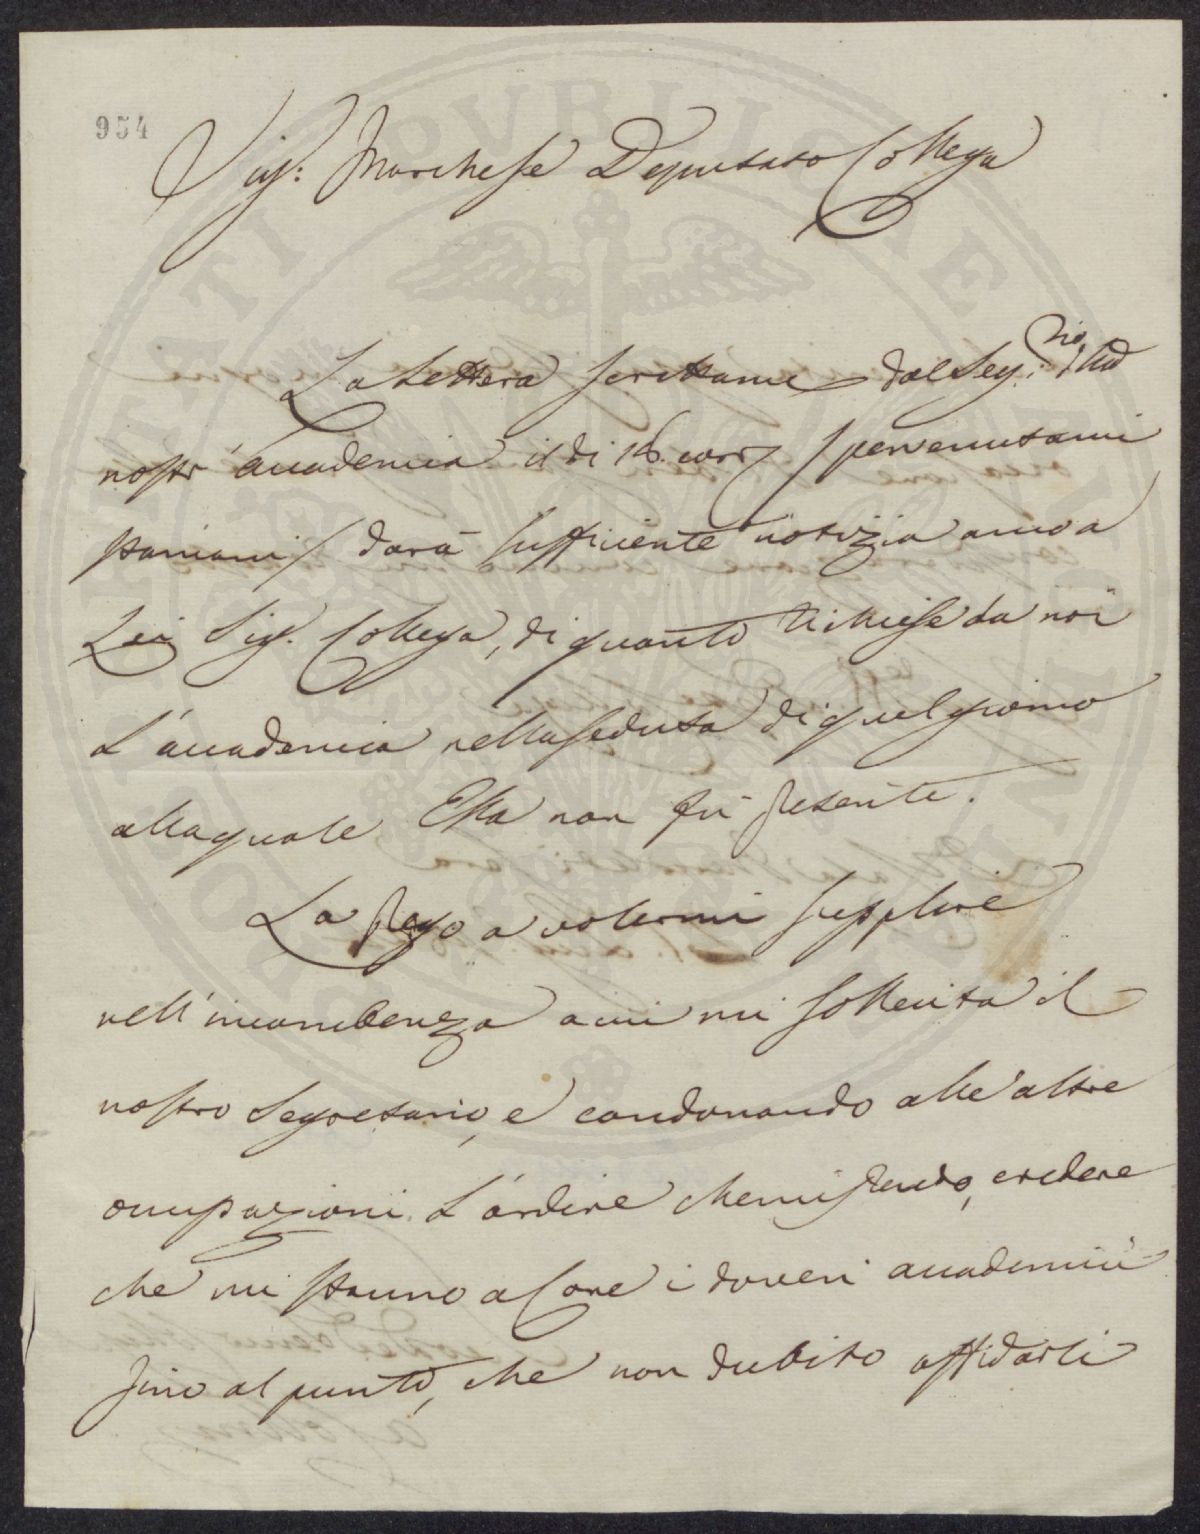 954
Sig: Marchese Deputato Collega
La Lettera scrittami dal Seg.rio
nostr' accademia il dì 16. corr. pervenutami
stamani darà sufficiente notizia anco a
Lei Sig. Collega, di quanto richiese da noi
L'accademia nella seduta di quel giorno
alla quale Ella non fù presente.
La prego a volermi supplire
nell'incombenza a cui mi sollecita il
nostro Segretario, e condonando alle altre
occupazioni l'ardire che mi prendo, credere
che mi stanno a Core i doveri accademici
fino al punto, che non dubito affidarli